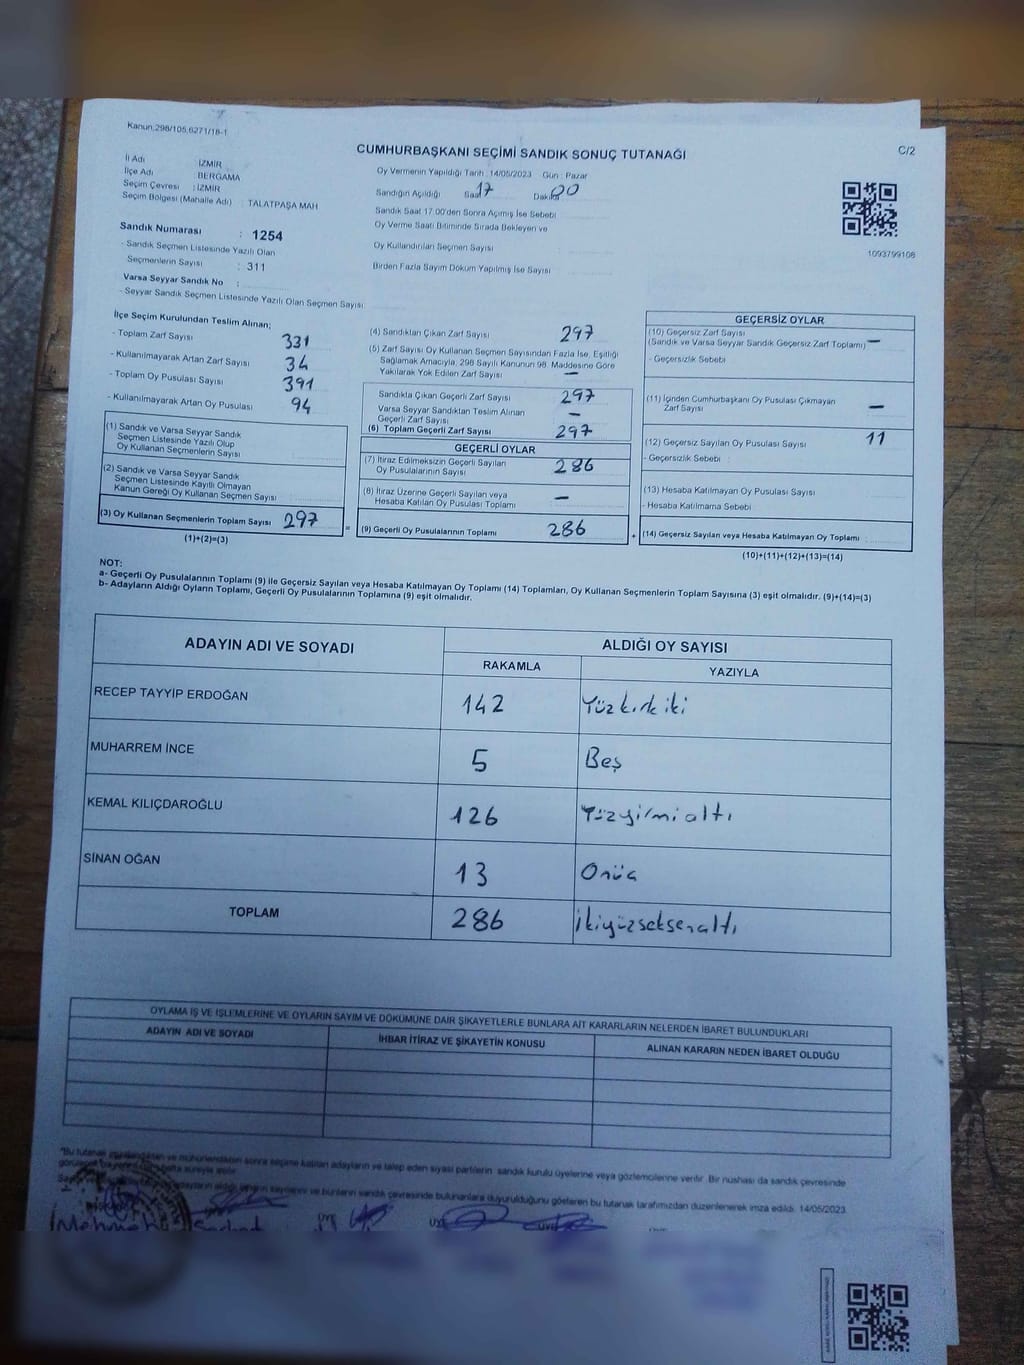 Kanun,298/105,6271/18-1
C/2
CUMHURBAŞKANI SEÇİMİ SANDIK SONUÇ TUTANAĞI
İl Adı İZMİR
İlçe Adı BERGAMA
Seçim Çevresi : İZMİR
Seçim Bölgesi (Mahalle Adı) : TALATPAŞA MAH
Oy Vermenin Yapıldığı Tarih :14/05/2023 Gün : Pazar
Sandığın Açıldığı Saat 17 Dakika 00
Sandık Saat 17.00'den Sonra Açımış İse Sebebi
Oy Verme Saati Bitiminde Sırada Bekleyen ve
Oy Kullandırılan Seçmen Sayısı
Birden Fazla Sayım Döküm Yapılmış İse Sayısı
1093799108
Sandık Numarası : 1254
- Sandık Seçmen Listesinde Yazılı Olan
Seçmenlerin Sayısı : 311
Varsa Seyyar Sandık No :
- Seyyar Sandık Seçmen Listesinde Yazılı Olan Seçmen Sayısı:
İlçe Seçim Kurulundan Teslim Alınan;
- Toplam Zarf Sayısı 331
- Kullanılmayarak Artan Zarf Sayısı 34
- Toplam Oy Pusulası Sayısı 391
- Kullanılmayarak Artan Oy Pusulası 94
(1) Sandık ve Varsa Seyyar Sandık
Seçmen Listesinde Yazılı Olup
Oy Kullanan Seçmenlerin Sayısı
(2) Sandık ve Varsa Seyyar Sandık
Seçmen Listesinde Kayıtlı Olmayan
Kanun Gereği Oy Kullanan Seçmen Sayısı :
(3) Oy Kullanan Seçmenlerin Toplam Sayısı 297
(1)+(2)=(3)
(4) Sandıktan Çıkan Zarf Sayısı 297
(5) Zarf Sayısı Oy Kullanan Seçmen Sayısından Fazla İse, Eşitliği
Sağlamak Amacıyla, 298 Sayılı Kanunun 98. Maddesine Göre
Yakılarak Yok Edilen Zarf Sayısı –
Sandıkta Çıkan Geçerli Zarf Sayısı 297
Varsa Seyyar Sandıktan Teslim Alınan
Geçerli Zarf Sayısı –
(6) Toplam Geçerli Zarf Sayısı 297
GEÇERLİ OYLAR
(7) İtiraz Edilmeksizin Geçerli Sayılan
Oy Pusulalarının Sayısı 286
(8) İtiraz Üzerine Geçerli Sayılan veya
Hesaba Katılan Oy Pusulası Toplamı –
= (9) Geçerli Oy Pusulalarının Toplamı 286 +
GEÇERSİZ OYLAR
(10) Geçersiz Zarf Sayısı
(Sandık ve Varsa Seyyar Sandık Geçersiz Zarf Toplamı) –
- Geçersizlik Sebebi
(11) İçinden Cumhurbaşkanı Oy Pusulası Çıkmayan
Zarf Sayısı –
(12) Geçersiz Sayılan Oy Pusulası Sayısı 11
- Geçersizlik Sebebi :
(13) Hesaba Katılmayan Oy Pusulası Sayısı
- Hesaba Katılmama Sebebi
(14) Geçersiz Sayılan veya Hesaba Katılmayan Oy Toplamı :
(10)+(11)+(12)+(13)=(14)
NOT:
a- Geçerli Oy Pusulalarının Toplamı (9) ile Geçersiz Sayılan veya Hesaba Katılmayan Oy Toplamı (14) Toplamları, Oy Kullanan Seçmenlerin Toplam Sayısına (3) eşit olmalıdır. (9)+(14)=(3)
b- Adayların Aldığı Oyların Toplamı, Geçerli Oy Pusulalarının Toplamına (9) eşit olmalıdır.
ADAYIN ADI VE SOYADI ALDIĞI OY SAYISI
RAKAMLA YAZIYLA
RECEP TAYYİP ERDOĞAN 142 Yüzkırkiki
MUHARREM İNCE 5 Beş
KEMAL KILIÇDAROĞLU 126 Yüzyirmialtı
SİNAN OĞAN 13 Onüç
TOPLAM 286 İkiyüzseksenaltı
OYLAMA İŞ VE İŞLEMLERİNE VE OYLARIN SAYIM VE DÖKÜMÜNE DAİR ŞİKAYETLERLE BUNLARA AİT KARARLARIN NELERDEN İBARET BULUNDUKLARI
ADAYIN ADI VE SOYADI İHBAR İTİRAZ VE ŞİKAYETİN KONUSU ALINAN KARARIN NEDEN İBARET OLDUĞU
"Bu tutanak ve mühürlendikten sonra seçime katılan adayların ve talep eden siyasi partilerin sandık kurulu üyelerine veya gözlemcilerine verilir. Bir nushası da sandık çevresinde
ve bunların sandık çevresinde bulunanlara duyurulduğunu gösteren bu tutanak tarafımızdan düzenlenerek imza edildi. 14/05/2023